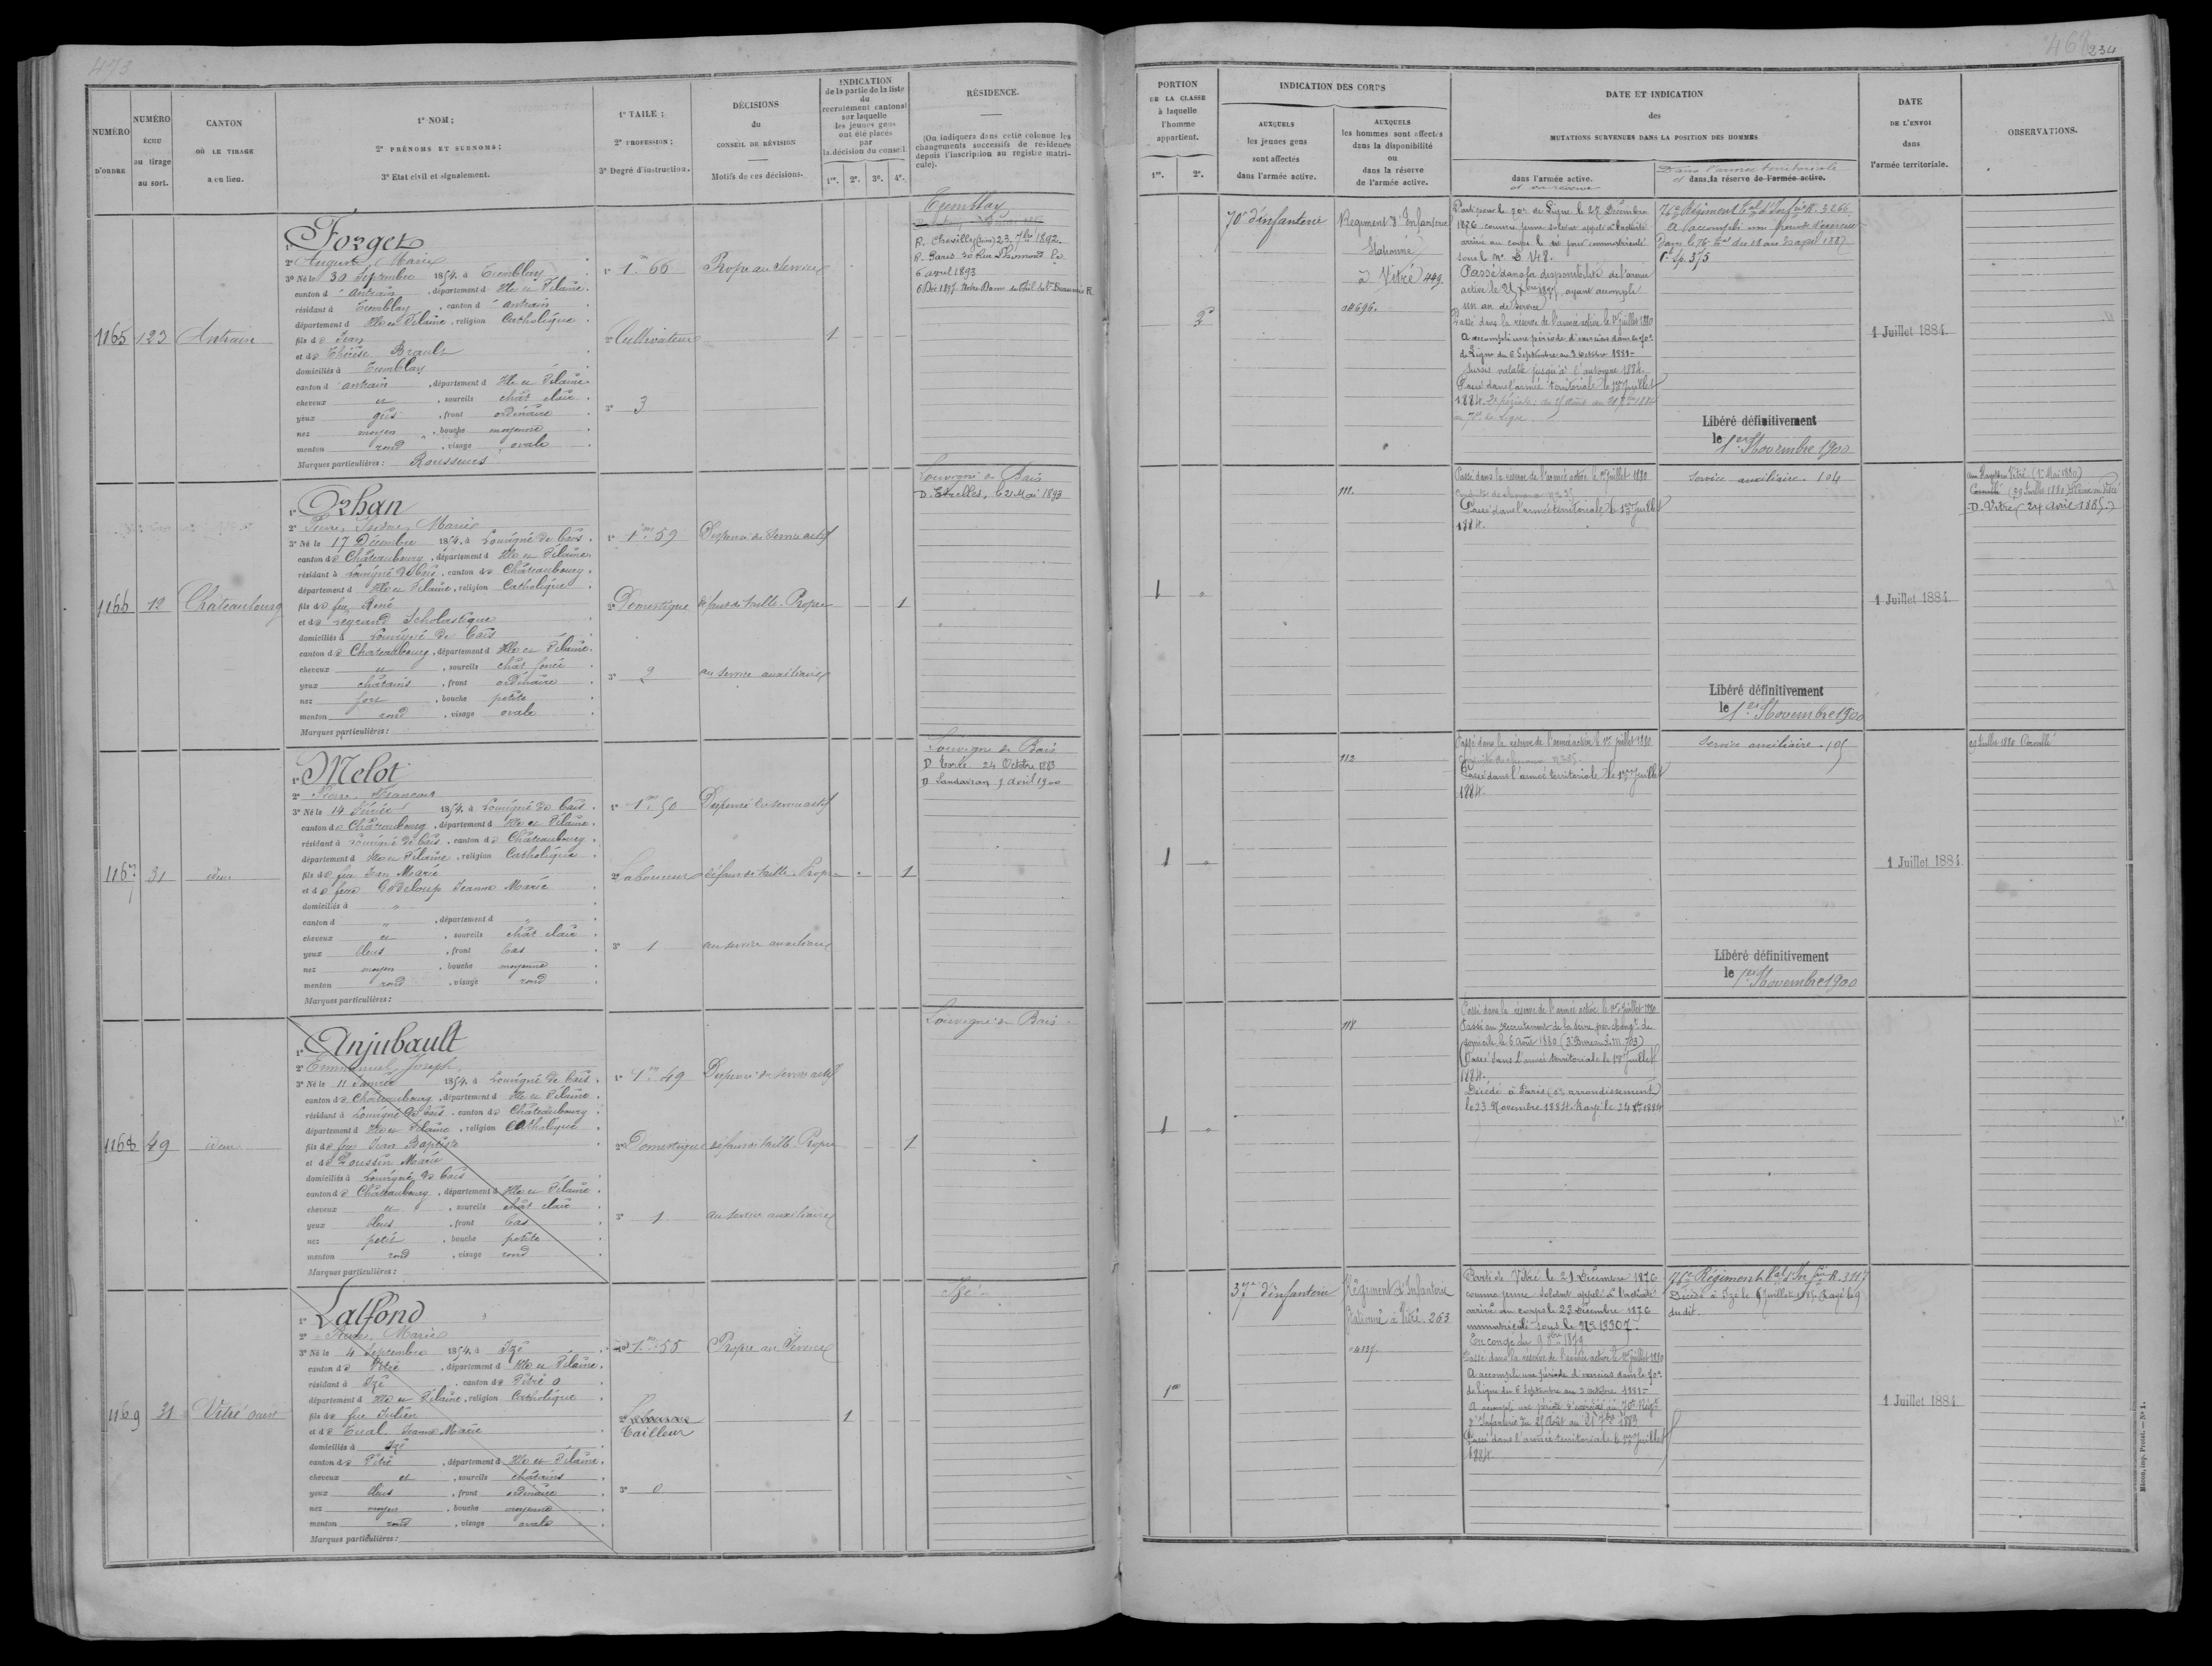 473
NUMÉRO D'ORDRE
NUMÉRO ÉCHU au tirage au sort.
CANTON OÙ LE TIRAGE a eu lieu.
1° NOM;
2° PRÉNOMS ET SURNOMS;
3° Etat civil et signalement.
1° TAILE;
2° PROFESSION;
3° Degré d'instruction.
DÉCISIONS du CONSEIL DE RÉVISION
Motifs de ces décisions.
INDICATION de la partie de la liste du recrutement cantonal sur laquelle les jeunes gens ont été placés par la décision du conseil.
1re. 2e. 3e. 4e.
RÉSIDENCE.
(On indiquera dans cette colonne les changements successifs de résidence depuis l'inscription au registre matricule).
1165
123
Antrain
1° Forget
2° Auguste Marie
3° Né le 30 Septembre 1854, à Tremblay
canton d'Antrain, département d'Ille et Vilaine.
résidant à Tremblay, canton d'Antrain
département d'Ille et Vilaine, religion Catholique
fils de Jean
et de Thérèse Brault
domiciliés à Tremblay
canton d'antrain, département d'Ille et Vilaine.
cheveux et, sourcils chât clair.
yeux gris, front ordinaire
nez moyen, bouche moyenne
menton rond, visage ovale
Marques particulières: Rousseurs
1° 1m 66
2° Cultivateur
3° 3
Propre au Service
1
Tremblay
R. Chevilly 23 7bre 1892
R. Paris
6 avril 1893
1166
12
Châteaubourg
1° Orhan
2° Pierre Isidore Marie
3° Né le 17 Décembre 1854, à Louvigné de Bais.
canton de Châteaubourg, département d'Ille et Vilaine.
résidant à Louvigné de Bais, canton de Châteaubourg.
département d'Ille et Vilaine, religion Catholique.
fils de feu René
et de Legrand Scholastique
domiciliés à Louvigné de Bais
canton de Châteaubourg, département d'Ille et Vilaine.
cheveux et, sourcils chât foncé
yeux châtains, front ordinaire
nez fort, bouche petite
menton rond, visage ovale
Marques particulières:
1° 1m 59
2° Domestique
3° 2
Dispensé du Service actif
défaut de taille. Propre
au service auxiliaire
1
Louvigné de Bais
D. Etrelles, le 21 Mai 1893
1167
31
idem
1° Melot
2° Pierre François
3° Né le 14 Février 1854, à Louvigné de Bais.
canton de Châteaubourg, département d'Ille et Vilaine.
résidant à Louvigné de Bais, canton de Châteaubourg.
département d'Ille et Vilaine, religion Catholique
fils de feu Jean Marie
et de feue Godeloup Jeanne Marie
domiciliés à "
canton d ", département d "
cheveux et, sourcils chât clair
yeux bleus, front bas
nez moyen, bouche moyenne
menton rond, visage rond
Marques particulières:
1° 1m 50
2° Laboureur
3° 1
Dispensé du service actif
défaut de taille. Propre
au service auxiliaire
1
Louvigné de Bais
D Torcé 24 Octobre 1883
D Landavran 9 Avril 1900
1168
49
idem
1° Anjubault
2° Emmanuel Joseph
3° Né le 11 Janvier 1854, à Louvigné de Bais.
canton de Châteaubourg, département d'Ille et Vilaine.
résidant à Louvigné de Bais, canton de Châteaubourg
département d'Ille et Vilaine, religion Catholique
fils de feu Jean Baptiste
et de Poussin Marie
domiciliés à Louvigné de Bais
canton de Châteaubourg, département d'Ille et Vilaine.
cheveux et, sourcils chât clair
yeux bleus, front bas
nez petit, bouche petite
menton rond, visage rond
Marques particulières:
1° 1m 49
2° Domestique
3° 1
Dispensé du service actif
défaut de taille. Propre
au service auxiliaire
1
Louvigné de Bais
1169
31
Vitré ouest
1° Lalfond
2° Marie
3° Né le 4 Septembre 1854, à Izé
canton de Vitré, département d'Ille et Vilaine.
résidant à Izé, canton de Vitré O
département d'Ille et Vilaine, religion Catholique
fils de feu Julien
et de Tual Jeanne Marie
domiciliés à Izé
canton de Vitré, département d'Ille et Vilaine.
cheveux et, sourcils châtains
yeux bleus, front ordinaire
nez moyen, bouche moyenne
menton rond, visage ovale
Marques particulières:
1° 1m 55
2° Tailleur
3° 0
Propre au Service
1
Izé
468 234
PORTION DE LA CLASSE à laquelle l'homme appartient.
1re. 2e.
INDICATION DES CORPS
AUXQUELS les jeunes gens sont affectés dans l'armée active.
AUXQUELS les hommes sont affectés dans la disponibilité ou dans la réserve de l'armée active.
DATE ET INDICATION des MUTATIONS SURVENUES DANS LA POSITION DES HOMMES
dans l'armée active.
et en réserve
Dans l'armée territoriale
et dans la réserve de l'armée active.
DATE DE L'ENVOI dans l'armée territoriale.
OBSERVATIONS.
2e
70e d'infanterie
Régiment d'Infanterie
Stationné
à Vitré 449
Parti pour le 70e de Ligne le 27 Décembre
1876 comme jeune soldat appelé à l'activité
arrivé au corps le dit jour immatriculé
sous le no
Passé dans la disponibilité de l'armée
active le
ayant accompli
un an de service
Passé dans la réserve de l'armée active le 1er juillet 1880
A accompli une période d'exercices dans le 70e
de Ligne du 6 Septembre au 3 octobre 1881
Sursis valable jusqu'à l'automne 1884.
Passé dans l'armée territoriale le 1er Juillet
1884.
76e Régiment tal d'Infrie R. 3266
A accompli une période d'exercices
dans le 76e tal du 18 au 30 avril 1887
Libéré définitivement
le 1er Novembre 1900
1 Juillet 1884
1 "
111.
Passé dans la réserve de l'armée active le 1er juillet 1880
Passé dans l'armée territoriale le 1er Juillet
1884.
Service auxiliaire. 104
Libéré définitivement
le 1er Novembre 1900
1 Juillet 1884
D. Vitré (24 Avril 1885)
1 "
112
Passé dans la réserve de l'armée active le 1er juillet 1880
Passé dans l'armée territoriale le 1er Juillet
1884.
Service auxiliaire. 105
Libéré définitivement
le 1er Novembre 1900
1 Juillet 1884
1 "
118
Passé dans la réserve de l'armée active le 1er juillet 1880
Passé au recrutement de la Seine par changt de
domicile le 6 Août 1880 (3e Bureau L.M. 703)
Passé dans l'armée territoriale le 1er Juillet
1884.
Décédé à Paris
arrondissement
le 23 Novembre 1884. Rayé le
1re
37e d'infanterie
Régiment d'Infanterie
Stationné à Vitré. 263
Parti de Vitré le 21 Décembre 1876
comme jeune soldat appelé à l'activité
arrivé au corps le 23 Décembre 1876
immatriculé sous le No 13307.
En congé du
1879
Passé dans la réserve de l'armée active le 1er juillet 1880
A accompli une période d'exercices dans le 70e
de Ligne du 6 Septembre au 3 octobre 1881
A accompli une période d'exercices au 70e Régt
d'Infanterie du 25 Août au 21 7bre 1883
Passé dans l'armée territoriale le 1er Juillet
1884.
76e Régiment tal d'Infrie R. 3117
Décédé à Izé le
Rayé le 9
du dit.
1 Juillet 1884
Mâcon, imp. Protat. — No 1.